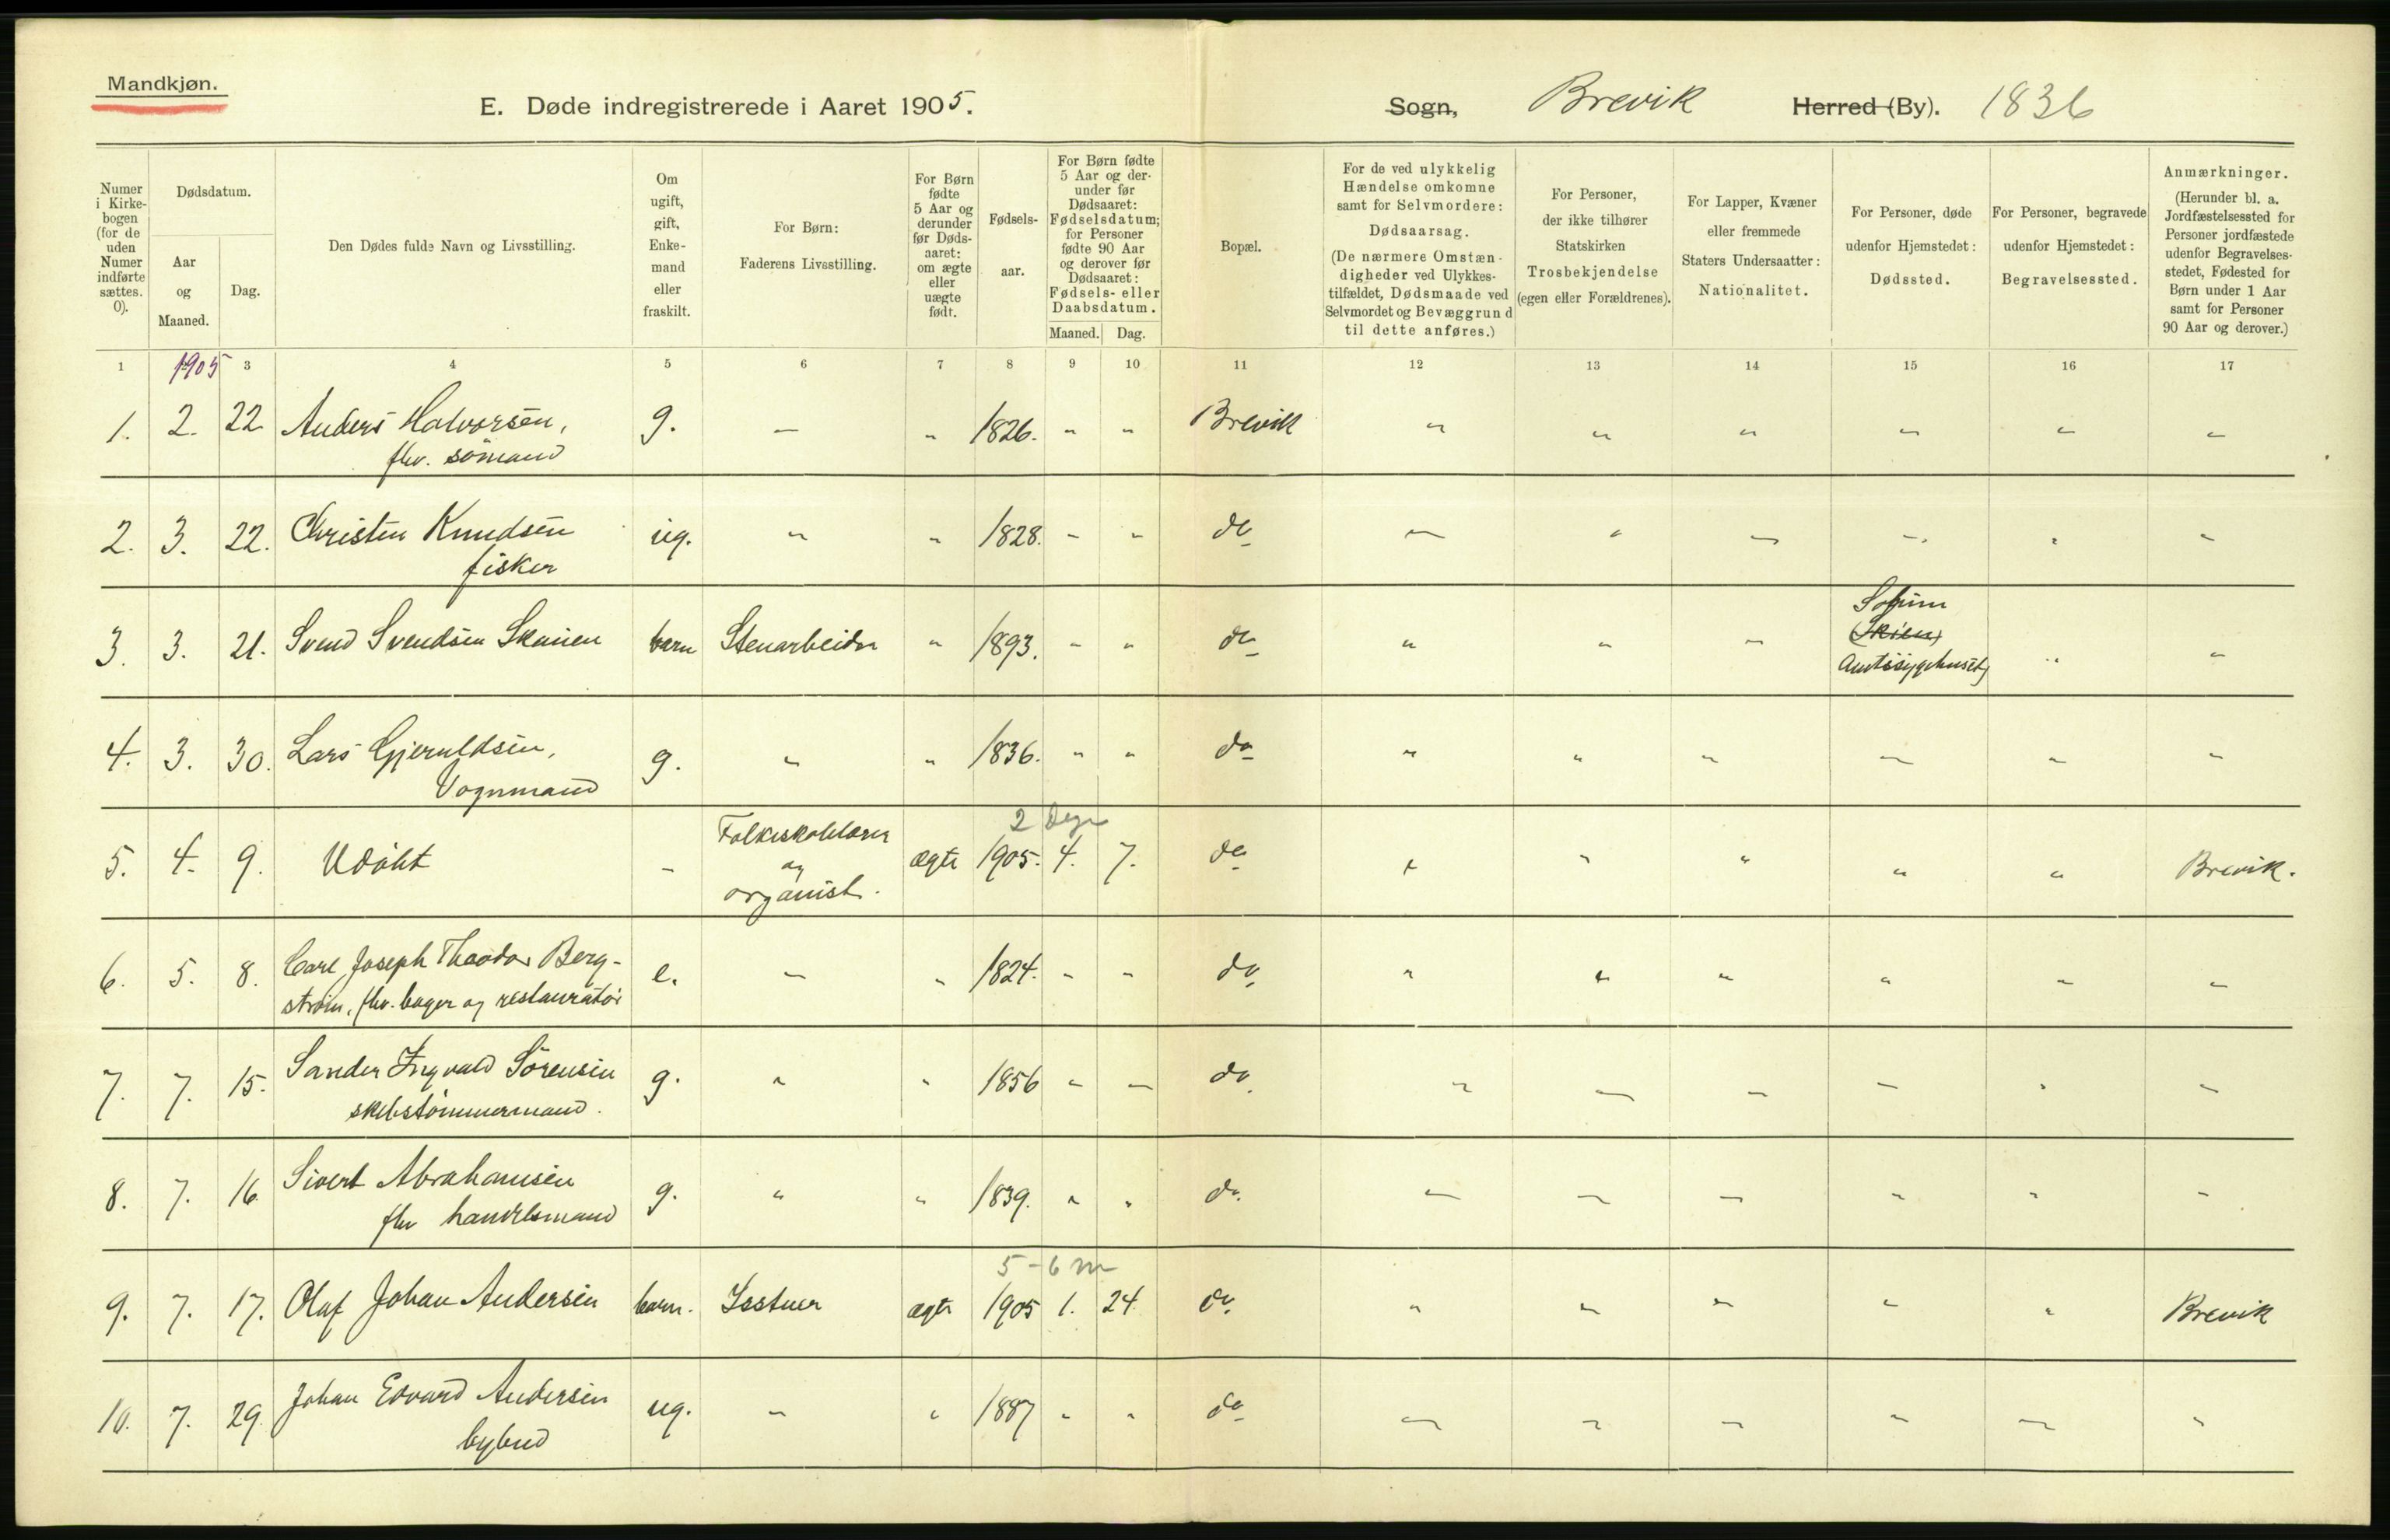 Mandkjøn.
E. Døde indregistrerede i Aaret 1905.
Sogn, Brevik Herred (By). 1836
Numer i Kirke-bogen (for de uden Numer indførte sættes. 0).
Dødsdatum.
Aar og Maaned.
Dag.
Den Dødes fulde Navn og Livsstilling.
Om ugift, gift, Enke-mand eller fraskilt.
For Børn: Faderens Livsstilling.
For Børn fødte 5 Aar og derunder før Døds-aaret: om ægte eller uægte født.
Fødsels-aar.
For Børn fødte 5 Aar og der-under før Dødsaaret: Fødselsdatum; for Personer fødte 90 Aar og derover før Dødsaaret: Fødsels- eller Daabsdatum.
Maaned. Dag.
Bopæl.
For de ved ulykkelig Hændelse omkomne samt for Selvmordere: Dødsaarsag. (De nærmere Omstæn-digheder ved Ulykkes-tilfældet, Dødsmaade ved Selvmordet og Bevæggrund til dette anføres.)
For Personer, der ikke tilhører Statskirken Trosbekjendelse (egen eller Forældrenes).
For Lapper, Kvæner eller fremmede Staters Undersaatter: Nationalitet.
For Personer, døde udenfor Hjemstedet: Dødssted.
For Personer, begravede udenfor Hjemstedet: Begravelsessted.
Anmærkninger. (Herunder bl. a. Jordfæstelsessted for Personer jordfæstede udenfor Begravelses-stedet, Fødested for Børn under 1 Aar samt for Personer 90 Aar og derover.)
1 1905 3 4 5 6 7 8 9 10 11 12 13 14 15 16 17
1. 2. 22 Anders Halvorsen, g. — " 1826. " " Brevik " " " " " "
flv. sømand
2. 3. 22. Christen Knudsen ug. " " 1828. " " do — " — - " "
fisker
3. 3. 21. Svend Svendsen Skauen barn Stenarbeider " 1893. " " do " " — Solum (Skien) Amtssygehuset) " "
4. 3. 30. Lars Gjeruldsen, g. " " 1836. " " do " " " — " "
Vognmand
2 Dage
5. 4. 9. Udøbt - Folkeskolelærer og organist. ægte 1905. 4. 7. do " " " " " Brevik.
6. 5. 8. Carl Joseph Theodor Berg- e. — " 1824. " " do " " " " " "
strøm, flv. bager og restauratør
7. 7. 15. Sander Ingvald Sørensen g. " " 1856 " — do " — — — " —
skibstømmermand.
8. 7. 16. Sivert Abrahamsen g. " " 1839. " " do. — — — " " "
flv handelsmand
5-6 m
9. 7. 17. Olaf Johan Andersen barn. Isstuer ægte 1905 1. 24. do. " " " " " Brevik
10. 7. 29. Johan Edvard Andersen ug. — " 1887 " " do — " — " — "
bybud